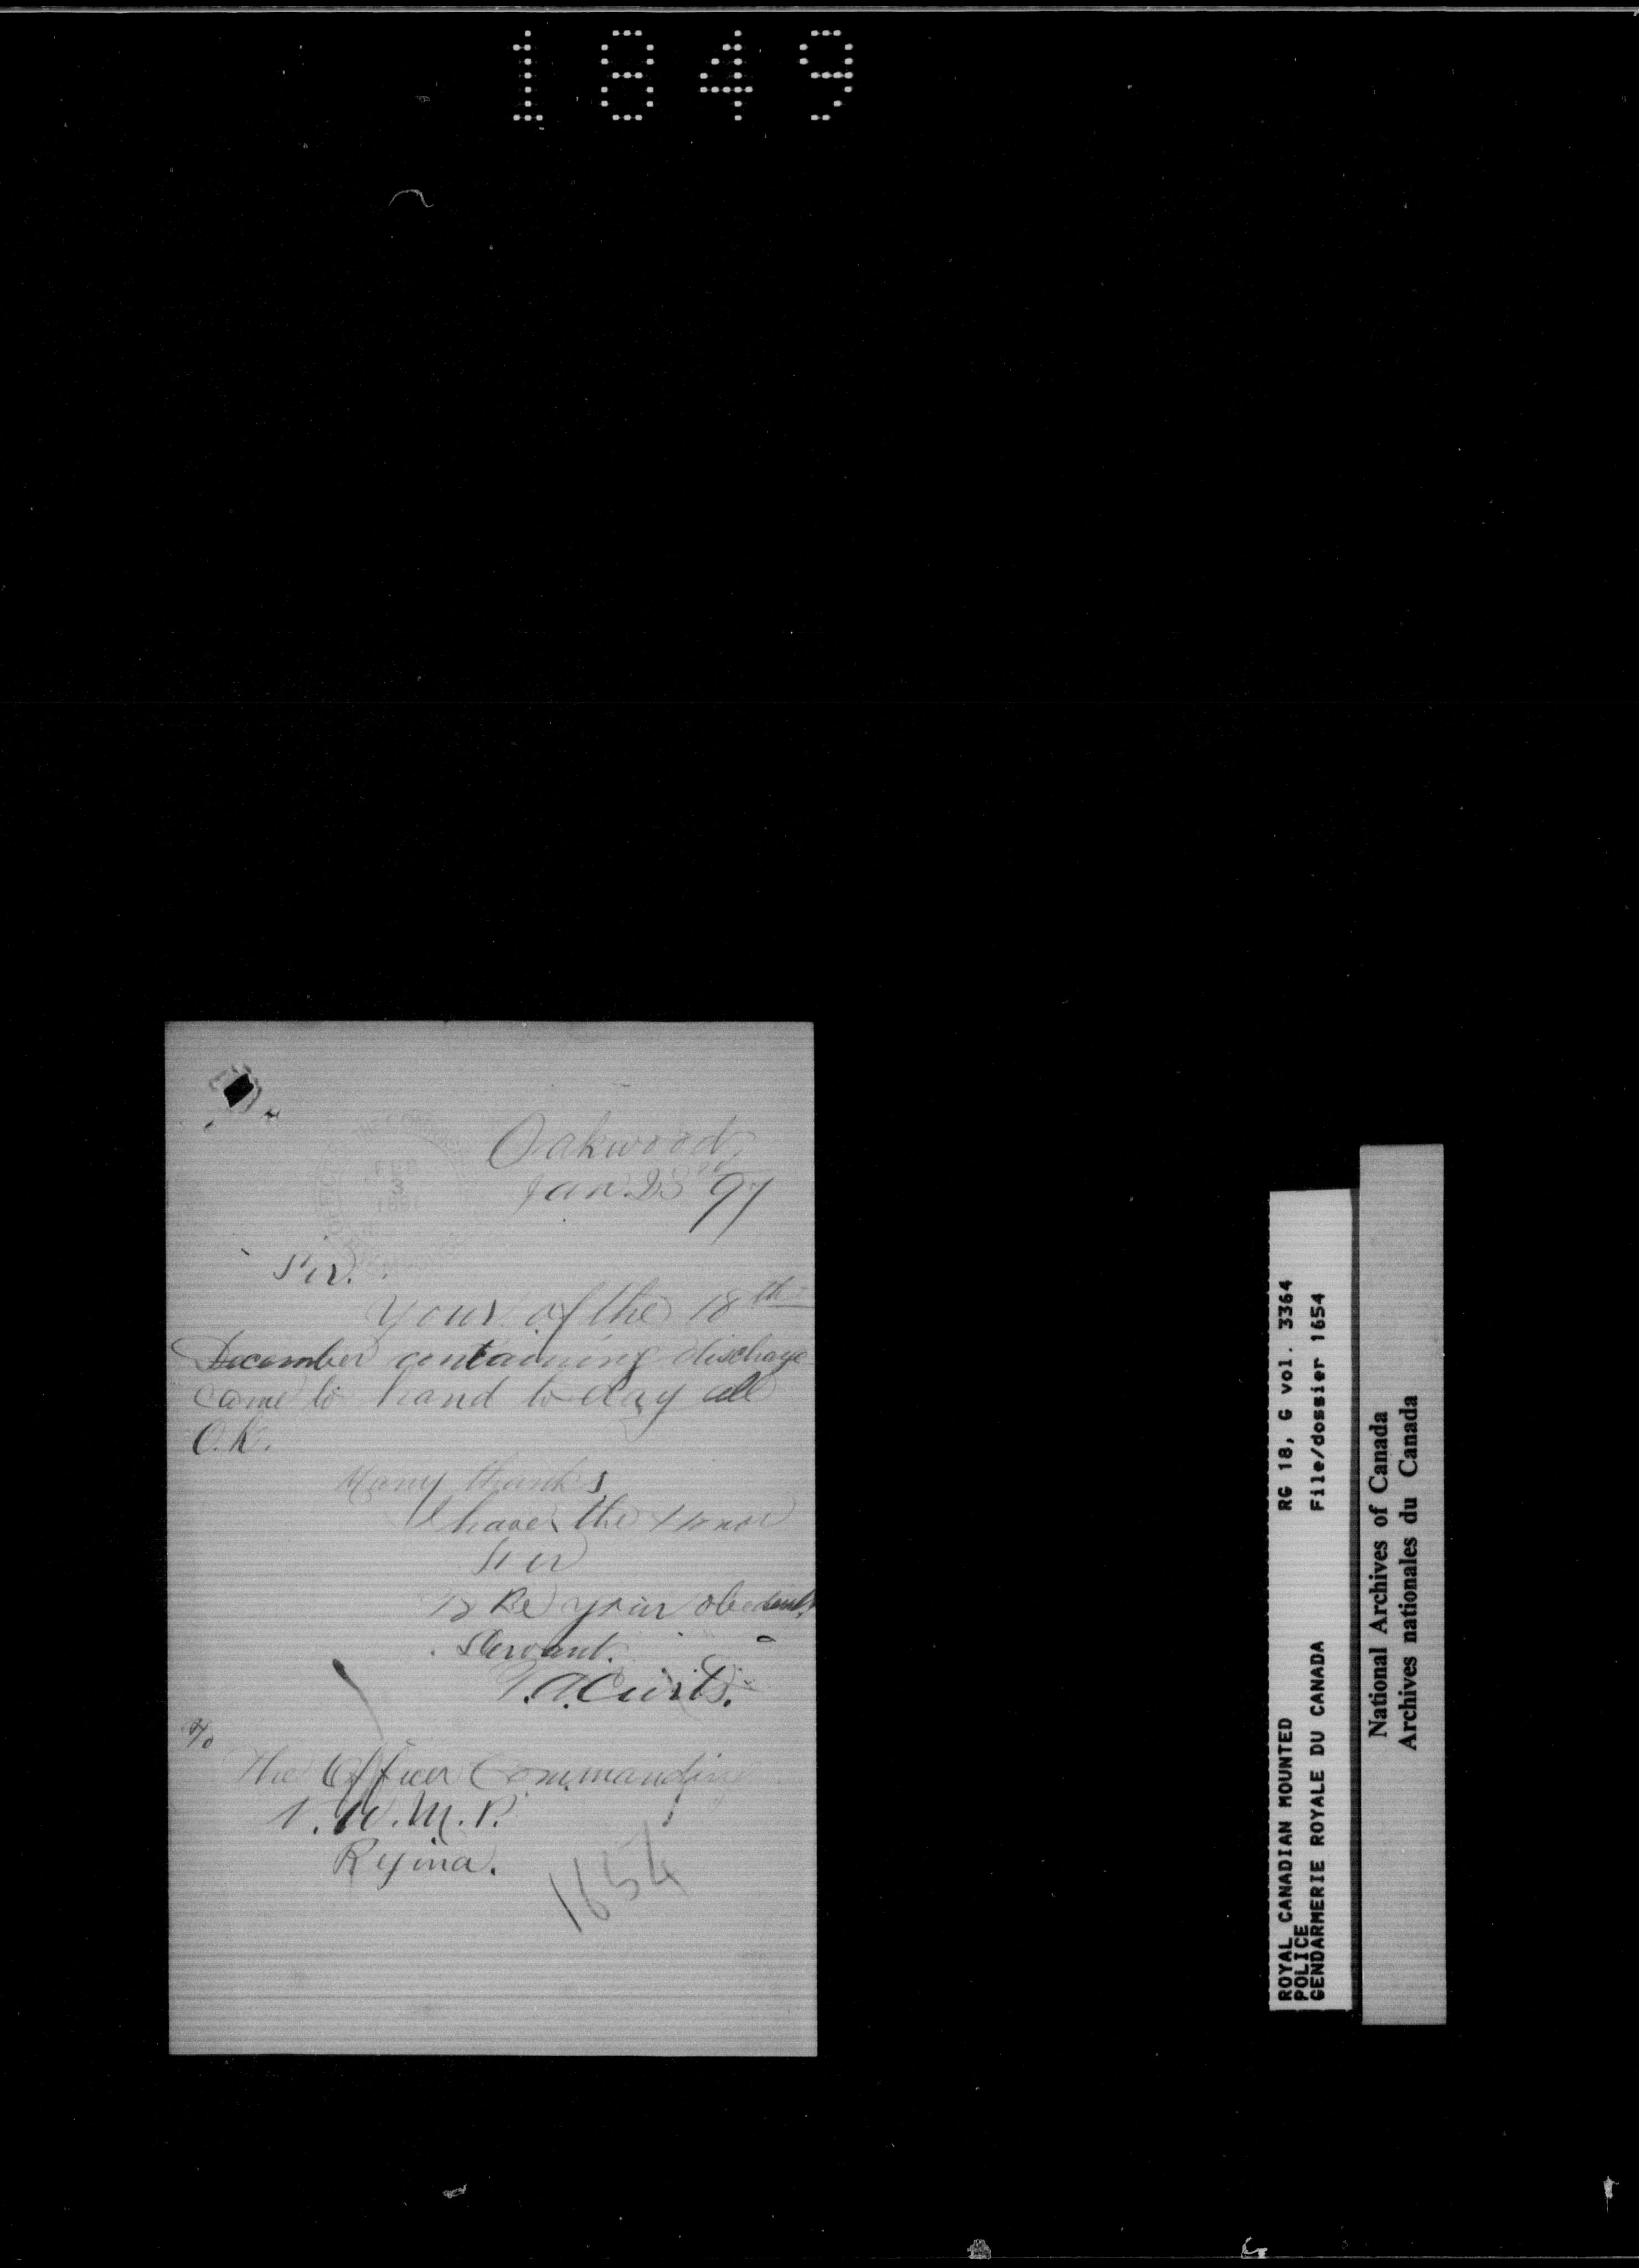 1849
Oakwood,
Jan. 23rd 97
OFFICE OF THE COMM
FEB
3
1891
Sir.
Yours of the 18th
December containing discharge
came to hand to day all
O.K.
Many thanks
I have the Honor
Sir
To Be your obedient
Servant.
T.A. Curtis.
To
The Officer Commanding
N.W.M.P.
Regina.
1654
ROYAL CANADIAN MOUNTED RG 18, G vol. 3364
POLICE
GENDARMERIE ROYALE DU CANADA File/dossier 1654
National Archives of Canada
Archives nationales du Canada